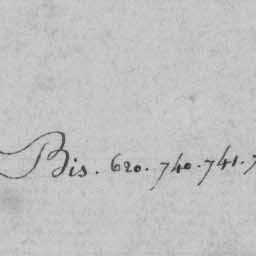 Bis. 620. 740. 741.